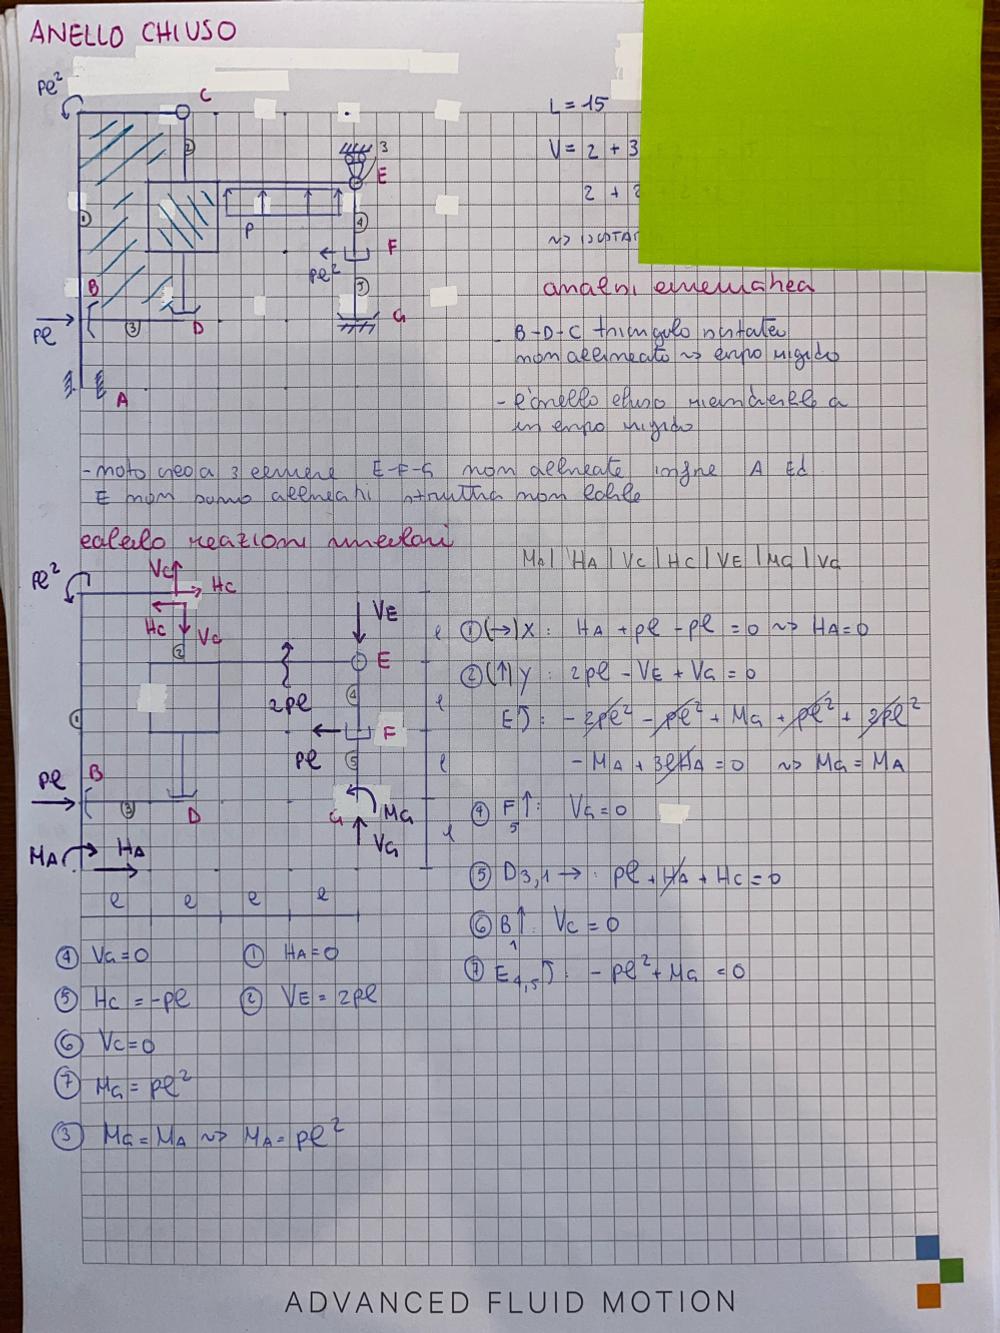 ANELLO CHIUSO
pl²
C
2
3
E
L = 15
V = 2 + 3
2 + 2
1
P
4
F
pl²
5
G
B
pl
3
D
A
analisi cinematica
B-D-C triangolo
non allineato ~> corpo rigido
- l'anello chiuso
in corpo rigido
- moto 3 cerniere E-F-G non allineate infine A Ed
E non sono allineati struttura non labile
calcolo reazioni vincolari
MA | HA | VC | HC | VE | MG | VG
pl²
VC
HC
HC
VC
2
VE
E
2pl
4
1
F
pl
5
pl
B
3
D
G
MG
VG
MA
HA
l l l l
l
l
l
l
① (→) X : HA + pl - pl = 0 ~> HA = 0
② (↑) Y : 2pl - VE + VG = 0
E : - 2pl² - pl² + MG + pl² + 2pl²
- MA + 3lHA = 0 ~> MG = MA
④ F5 ↑ : VG = 0
⑤ D3,1 → : pl + HA + HC = 0
⑥ B1 ↑ : VC = 0
⑦ E4,5 : - pl² + MG = 0
④ VG = 0 ① HA = 0
⑤ HC = -pl ② VE = 2pl
⑥ VC = 0
⑦ MG = pl²
③ MG = MA ~> MA = pl²
ADVANCED FLUID MOTION